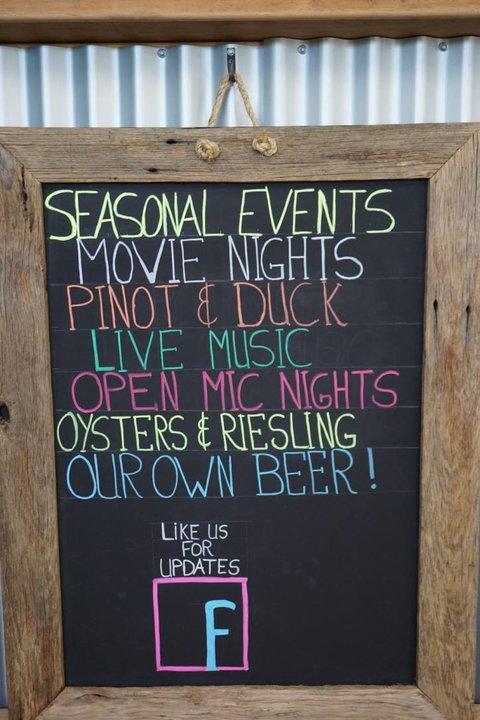 SEASONAL EVENTS
MOVIE NIGHTS
PINOT & DUCK
LIVE MUSIC
OPEN MIC NIGHTS
OYSTERS & RIESLING
OUR OWN BEER!
LIKE US
FOR
UPDATES
F